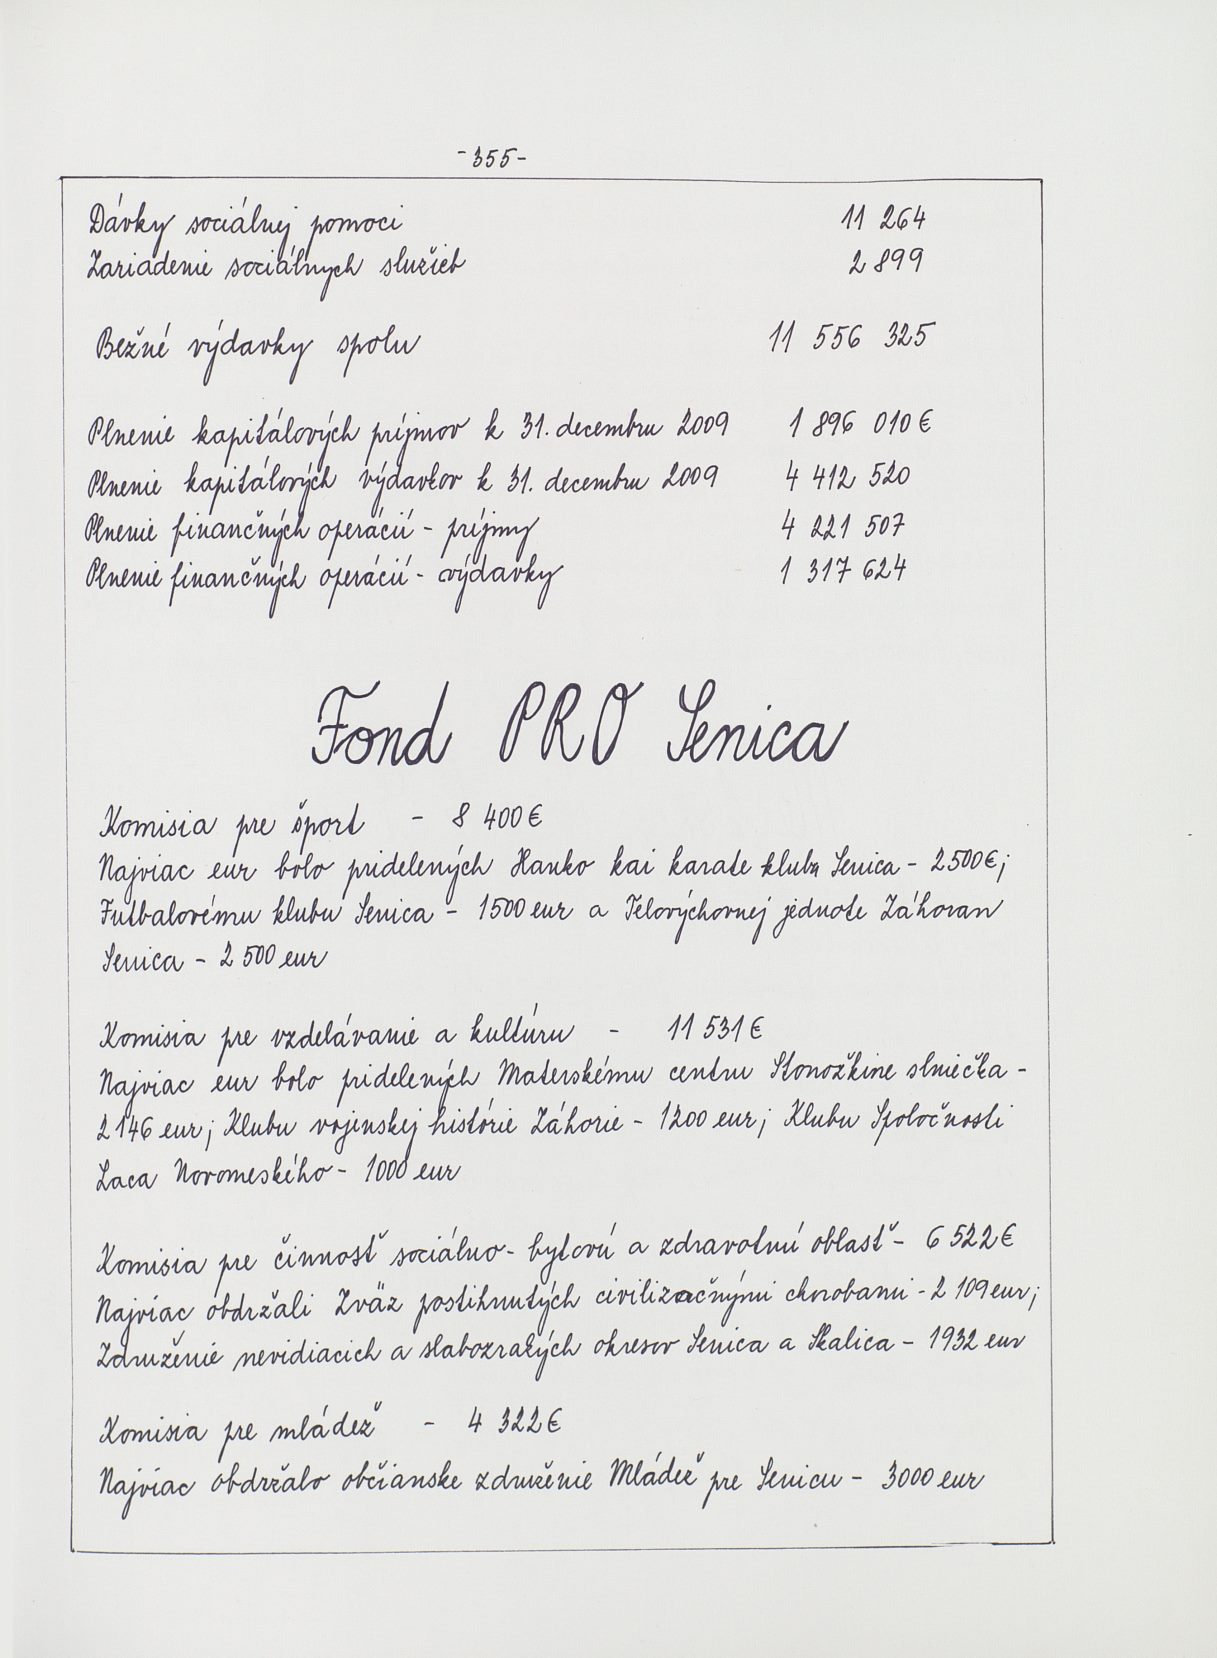 -355-
Dávky sociálnej pomoci 11 264
Zariadenie sociálnych služieb 2 899
Bežné výdavky spolu 11 556 325
Plnenie kapitálových príjmov k 31. decembru 2009 1 896 010 €
Plnenie kapitálových výdavkov k 31. decembru 2009 4 412 520
Plnenie finančných operácií - príjmy 4 221 507
Plnenie finančných operácií - výdavky 1 317 624
Fond PRO Senica
Komisia pre šport - 8 400 €
Najviac eur bolo pridelených Hanko kai karate klubu Senica - 2500 €;
Futbalovému klubu Senica - 1500 eur a Telovýchovnej jednote Záhoran
Senica - 2 500 eur
Komisia pre vzdelávanie a kultúru - 11 531 €
Najviac eur bolo pridelených Materskému centru Stonožkine slniečka -
2 146 eur; Klubu vojenskej histórie Záhorie - 1200 eur; Klubu Spoločnosti
Laca Novomeského - 1000 eur
Komisia pre činnosť sociálno-bytovú a zdravotnú oblasť - 6 522 €
Najviac obdržali Zväz postihnutých civilizačnými chorobami - 2 109 eur;
Združenie nevidiacich a slabozrakých okresov Senica a Skalica - 1932 eur
Komisia pre mládež - 4 322 €
Najviac obdržalo občianske združenie Mládež pre Senicu - 3000 eur